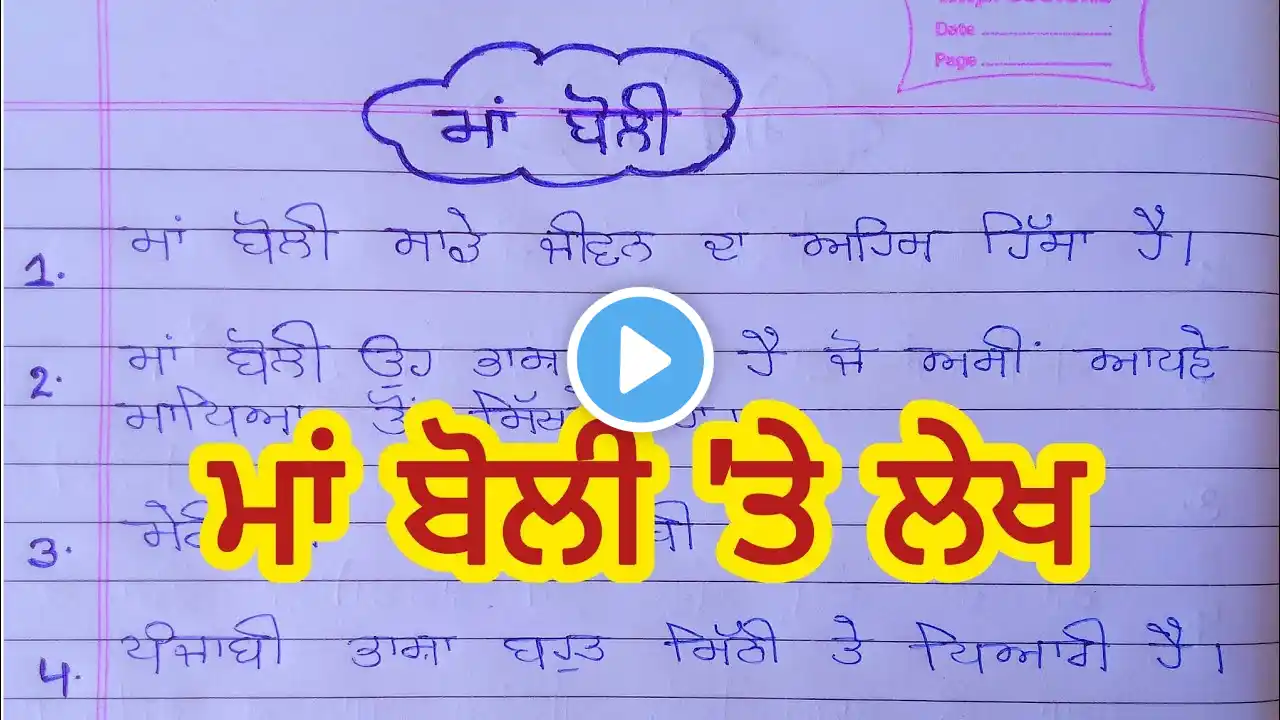 Date
Page
ਮਾਂ ਬੋਲੀ
1. ਮਾਂ ਬੋਲੀ ਸਾਡੇ ਜੀਵਨ ਦਾ ਅਹਿਮ ਹਿੱਸਾ ਹੈ।
2. ਮਾਂ ਬੋਲੀ ਉਹ ਹੈ ਜੋ ਅਸੀਂ ਆਪਣੇ
ਮਾਪਿਆ ਤੋਂ
ਮਾਂ ਬੋਲੀ 'ਤੇ ਲੇਖ
3.
4. ਪੰਜਾਬੀ ਭਾਸ਼ਾ ਬਹੁਤ ਮਿੱਠੀ ਤੇ ਪਿਆਰੀ ਹੈ।